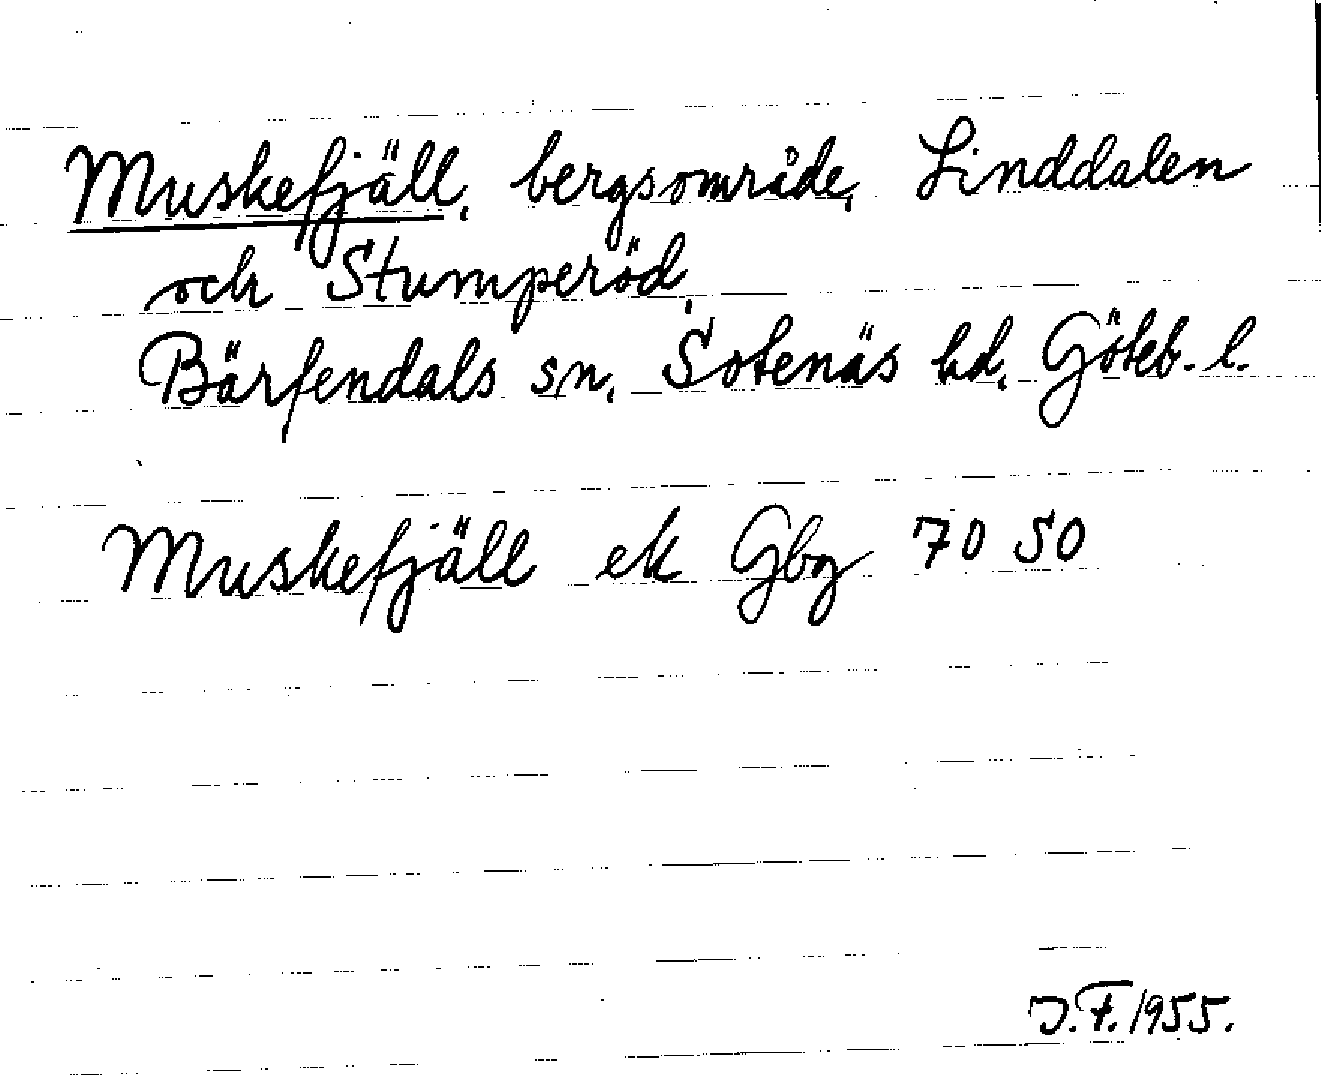 Muskefjäll, bergsområde, Linddalen
och Stumperöd,
Bärfendals sn, Sotenäs hd, Göteb. l.
Muskefjäll ek Gbg 70 50
J.F. 1955.